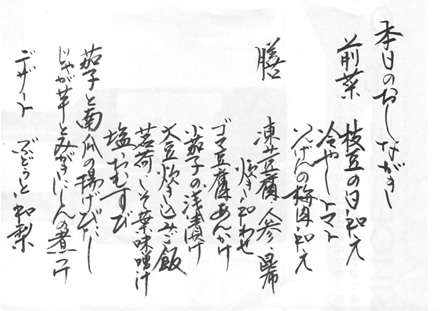 本日のおしながき
前菜 枝豆の白和え
冷やしトマト
の梅肉和え
膳 凍豆腐 人参
炊き合わせ
ゴマ豆腐あんかけ
小茄子の浅漬け
大豆炊き込みご飯
茗荷 しそ葉味噌汁
塩おむすび
茄子と南瓜の揚げびたし
じゃが芋とみがきにしんの煮つけ
デザート ぶどうと和梨